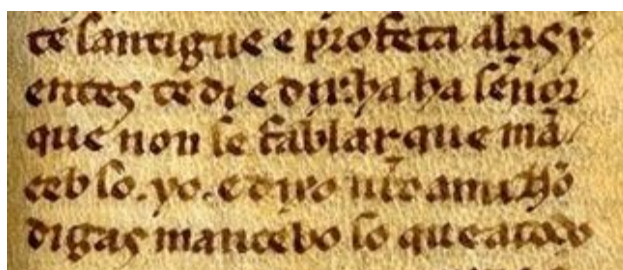 te santigue e profeta alas y
entes te di e dix: ha ha señor
que non se fablar que mā
ceb so. yo. e dixo nr̄o a mi no
digas mancebo so que a todo